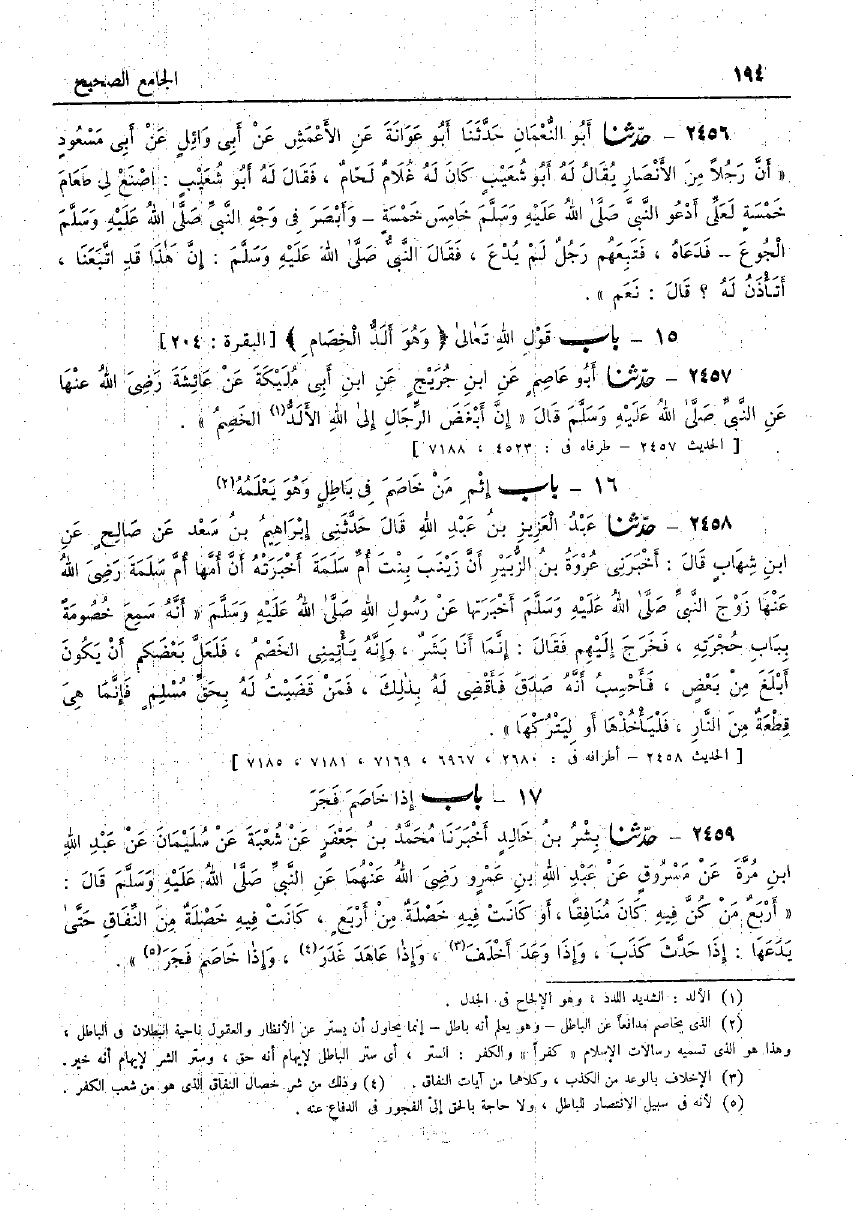 ١٩٤
الجامع الصحيح
٢٤٥٦ - حدّثنا أَبُو النُّعْمَانِ حَدَّثَنَا أَبُو عَوَانَةَ عَنِ الأَعْمَشِ عَنْ أَبِى وَائِلٍ عَنْ أَبِى مَسْعُودٍ
« أَنَّ رَجُلاً مِنَ الأَنْصَارِ يُقَالُ لَهُ أَبُو شُعَيْبٍ كَانَ لَهُ غُلَامٌ لَحَامٌ ، فَقَالَ لَهُ أَبُو شُعَيْبٍ : اصْنَعْ لِى طَعَامَ
خَمْسَةٍ لَعَلِّى أَدْعُو النَّبِىَّ صَلَّى اللهُ عَلَيْهِ وَسَلَّمَ خَامِسَ خَمْسَةٍ – وَأَبْصَرَ فِى وَجْهِ النَّبِىِّ صَلَّى اللهُ عَلَيْهِ وَسَلَّمَ
الْجُوعَ – فَدَعَاهُ ، فَتَبِعَهُم رَجُلٌ لَمْ يُدْعَ ، فَقَالَ النَّبِىُّ صَلَّى اللهُ عَلَيْهِ وَسَلَّمَ : إِنَّ هَٰذَا قَدِ اتَّبَعَنَا ،
أَتَأْذَنُ لَهُ ؟ قَالَ : نَعَم » .
١٥ - باب قَوْلِ اللهِ تَعَالىٰ ﴿ وَهُوَ أَلَدُّ الْخِصَامِ ﴾ [ البقرة : ٢٠٤ ]
٢٤٥٧ - حدّثنا أَبُو عَاصِمٍ عَنِ ابنِ جُرَيْجٍ عَنِ ابنِ أَبِى مُلَيْكَةَ عَنْ عَائِشَةَ رَضِىَ اللهُ عنْهَا
عَنِ النَّبِىِّ صَلَّى اللهُ عَلَيْهِ وَسَلَّمَ قَالَ « إِنَّ أَبْغَضَ الرِّجَالِ إِلىٰ اللهِ الأَلَدُّ(١) الخَصِمُ » .
[ الحديث ٢٤٥٧ – طرفاه فى : ٤٥٢٣ ، ٧١٨٨ ]
١٦ - باب إِثْمِ مَنْ خَاصَمَ فِى بَاطِلٍ وَهُوَ يَعْلَمُهُ(٢)
٢٤٥٨ - حدّثنا عَبْدُ الْعَزِيزِ بنُ عَبْدِ اللهِ قَالَ حَدَّثَنِى إِبْرَاهِيمُ بنُ سَعْد عَن صَالِحٍ عَنِ
ابنِ شِهَابٍ قَالَ : أَخْبَرَنِى عُرْوَةُ بنُ الزُّبَيْرِ أَنَّ زَيْنَبَ بِنْتَ أُمِّ سَلَمَةَ أَخْبَرَتْهُ أَنَّ أُمَّهَا أُمَّ سَلَمَةَ رَضِىَ اللهُ
عَنْهَا زَوْجَ النَّبِىِّ صَلَّى اللهُ عَلَيْهِ وَسَلَّمَ أَخْبَرَتهَا عَنْ رَسُولِ اللهِ صَلَّى اللهُ عَلَيْهِ وَسَلَّمَ « أَنَّهُ سَمِعَ خُصُومَةً
بِبَابِ حُجْرَتِهِ ، فَخَرَجَ إِلَيْهِم فَقَالَ : إِنَّمَا أَنَا بَشَرٌ ، وَإِنَّهُ يَأْتِينِى الخَصْمُ ، فَلَعَلَّ بَعْضَكم أَنْ يَكُونَ
أَبْلَغَ مِنْ بَعْضٍ ، فَأَحْسِبُ أَنَّهُ صَدَقَ فَأَقْضِى لَهُ بِذٰلِكَ ، فَمَنْ قَضَيْتُ لَهُ بِحَقِّ مُسْلِمٍ فَإِنَّمَا هِىَ
قِطْعَةٌ مِنَ النَّارِ ، فَلْيَأْخُذْهَا أَو لِيَتْرُكْهَا » .
[ الحديث ٢٤٥٨ – أطرافه فى : ٢٦٨٠ ، ٦٩٦٧ ، ٧١٦٩ ، ٧١٨١ ، ٧١٨٥ ]
١٧ - باب إِذَا خَاصَمَ فَجَرَ
٢٤٥٩ - حدّثنا بِشْرُ بنُ خَالِدٍ أَخْبَرَنَا مُحَمَّدُ بنُ جَعْفَرٍ عَنْ شُعْبَةَ عَنْ سُلَيْمَانَ عَنْ عَبْدِ اللهِ
ابنِ مُرَّةَ عَنْ مَسْرُوقٍ عَنْ عَبْدِ اللهِ بنِ عَمْرٍو رَضِىَ اللهُ عَنْهُمَا عَنِ النَّبِىِّ صَلَّى اللهُ عَلَيْهِ وَسَلَّمَ قَالَ :
« أَرْبَعٌ مَنْ كُنَّ فِيهِ كَانَ مُنَافِقًا ، أَو كَانَتْ فِيهِ خَصْلَةٌ مِنْ أَرْبَعٍ ، كَانَتْ فِيهِ خَصْلَةٌ مِنَ النِّفَاقِ حَتَّىٰ
يَدَعَهَا : إِذَا حَدَّثَ كَذَبَ ، وَإِذَا وَعَدَ أَخْلَفَ(٣) ، وَإِذَا عَاهَدَ غَدَرَ(٤) ، وَإِذَا خَاصَمَ فَجَرَ(٥) » .
(١) الألد : الشديد اللدد ، وهو الإلحاح فى الجدل .
(٢) الذى يخاصم مدافعاً عن الباطل – وهو يعلم أنه باطل – إنما يحاول أن يستر عن الأنظار والعقول ناحية البطلان فى الباطل ،
وهذا هو الذى تسميه رسالات الإسلام « كفراً » والكفر : الستر ، أى ستر الباطل لإيهام أنه حق ، وستر الشر لإيهام أنه خير .
(٣) الإخلاف بالوعد من الكذب ، وكلاهما من آيات النفاق . (٤) وذلك من شر خصال النفاق الذى هو من شعب الكفر .
(٥) لأنه فى سبيل الانتصار للباطل ، ولا حاجة بالحق إلى الفجور فى الدفاع عنه .